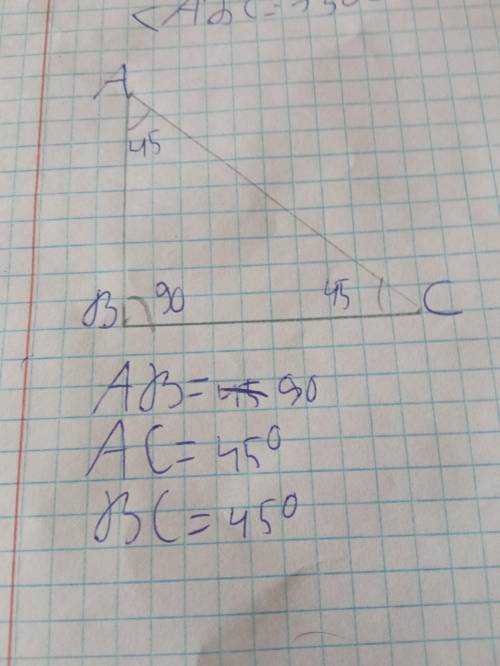 <ABC=
A
45
B 90 45 C
AB= 45 90
AC= 45°
BC= 45°